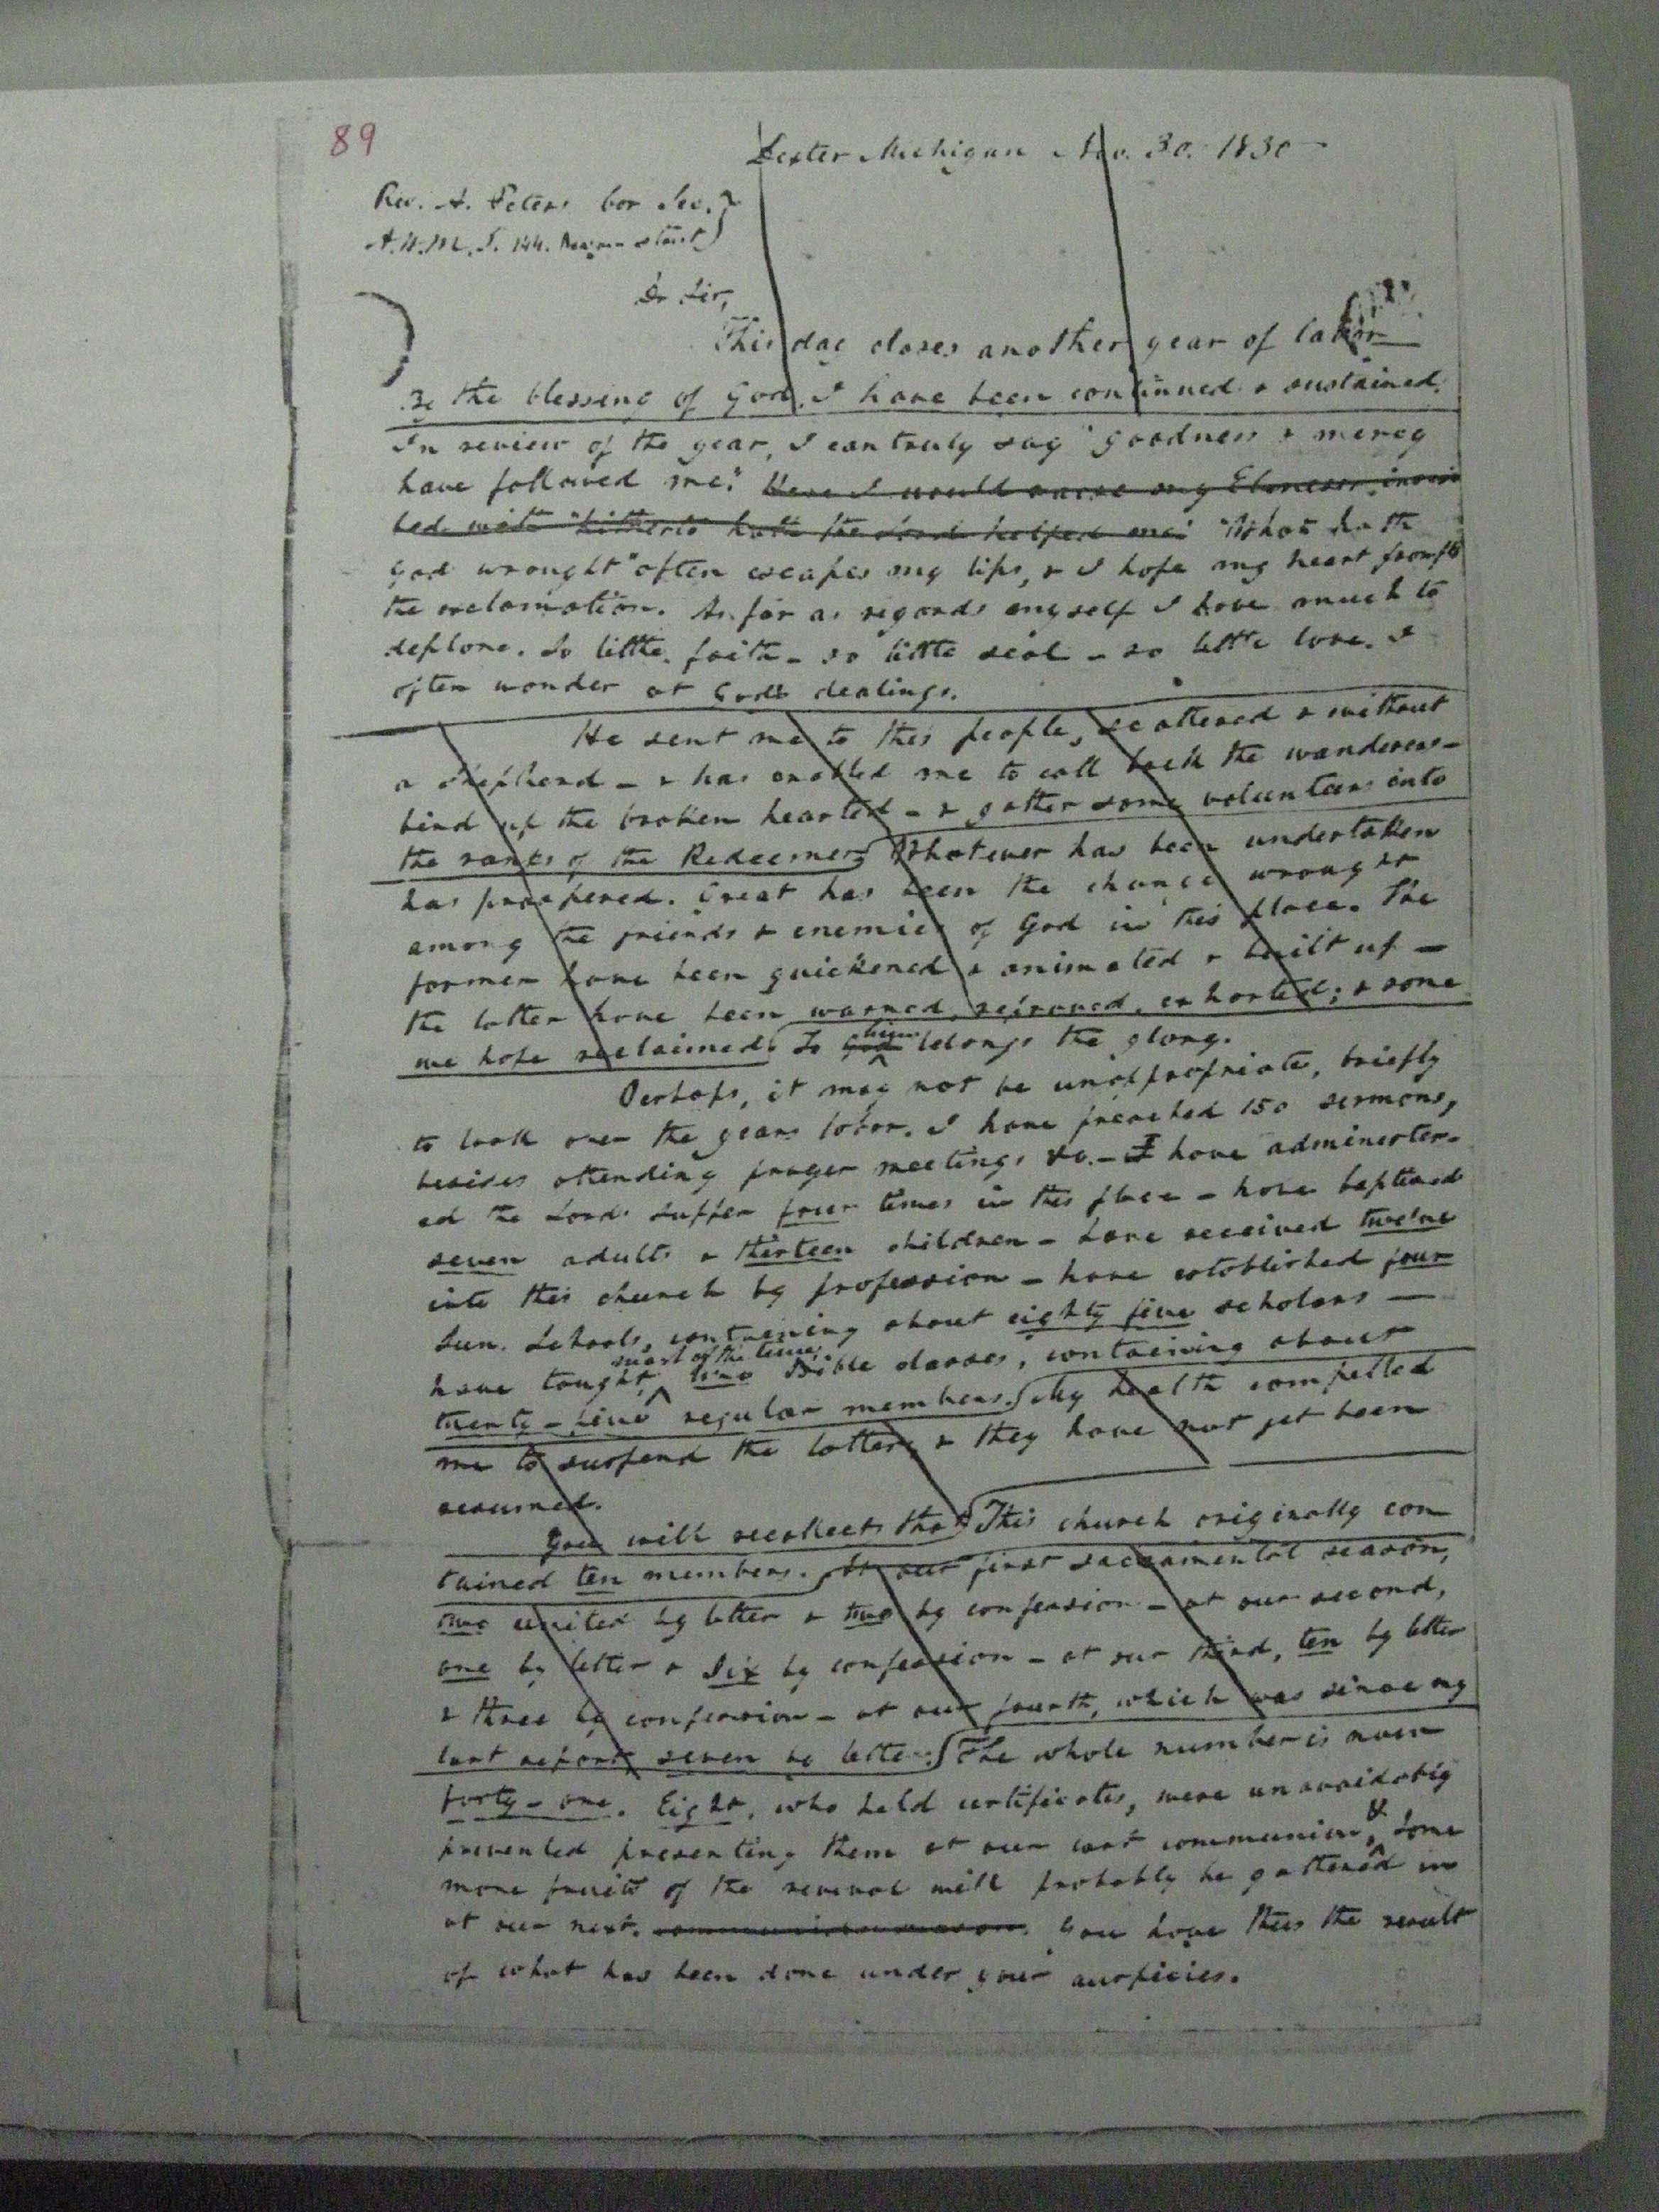 89
Dexter Michigan Nov. 30. 1830
Rev. A. Peters Cor Sec.
A.H.M.S. 144. Nassau street
Dr Sir,
This day closes another year of labor
By the blessing of God, I have been continued & sustained.
In review of the year, I can truly say "goodness & mercy
have followed me." Here I would raise my Ebenezer, inscri
bed with "hitherto hath the Lord helped me." "What hath
God wrought" often escapes my lips, & I hope my heart prompts
the exclamation. As far as regards myself I have much to
deplore. So little faith – so little zeal – so little love. I
often wonder at God's dealings.
He sent me to this people, scattered & without
a shepherd – & has enabled me to call back the wanderers –
bind up the broken hearted – & gather some volunteers into
the ranks of the Redeemer. Whatever has been undertaken
has prospered. Great has been the change wrought
among the friends & enemies of God in this place. The
former have been quickened & animated & built up –
the latter have been warned, reproved, exhorted; & some
we hope reclaimed. To God him belongs the glory.
Perhaps, it may not be unappropriate, briefly
to look over the years labor. I have preached 150 sermons,
besides attending prayer meetings &c. – I have administer-
ed the Lords supper four times in this place – have baptized
seven adults & thirteen children – have received twelve
into this church by profession – have established four
Sun. Schools, containing about eighty five scholars –
have taught, most of the time, two Bible classes, containing about
twenty-five regular members. My health compelled
me to suspend the latter, & they have not yet been
resumed.
You will recollect that This church originally con
tained ten members. At our first sacramental season,
two united by letter & two by confession – at our second,
one by letter & six by confession – at our third, ten by letter
& three by confession – at our fourth, which was since my
last report, seven by letter. The whole number is now
forty-one. Eight, who held certificates, were unavoidably
prevented presenting them at our last communion, & some
more fruits of the revival will probably be gathered in
at our next. communion season. You have thus the result
of what has been done under your auspicies.